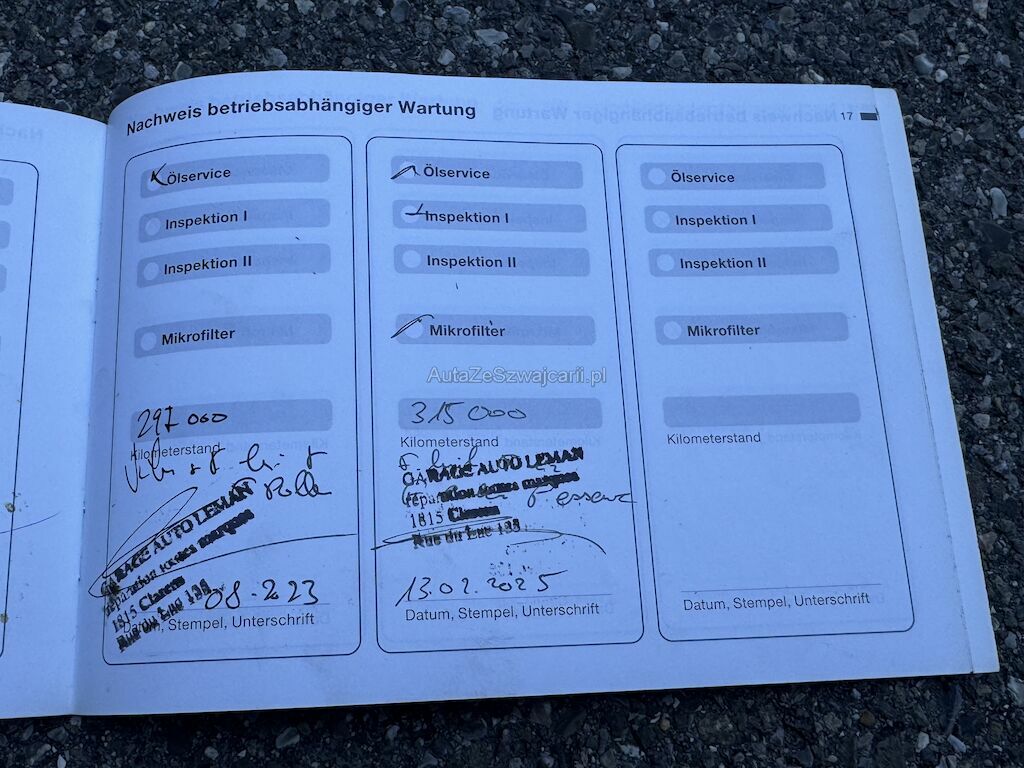 Nachweis betriebsabhängiger Wartung
17
Ölservice
Inspektion I
Inspektion II
Mikrofilter
297 000
Kilometerstand
GARAGE AUTO LEMAN
réparation toutes marques
1815 Clarens
Rue du Lac 133
08-2023
Datum, Stempel, Unterschrift
Ölservice
Inspektion I
Inspektion II
Mikrofilter
AutaZeSzwajcarii.pl
315000
Kilometerstand
GARAGE AUTO LEMAN
réparation toutes marques
essence
1815 Clarens
Rue du Lac 133
13.02.2025
Datum, Stempel, Unterschrift
Ölservice
Inspektion I
Inspektion II
Mikrofilter
Kilometerstand
Datum, Stempel, Unterschrift